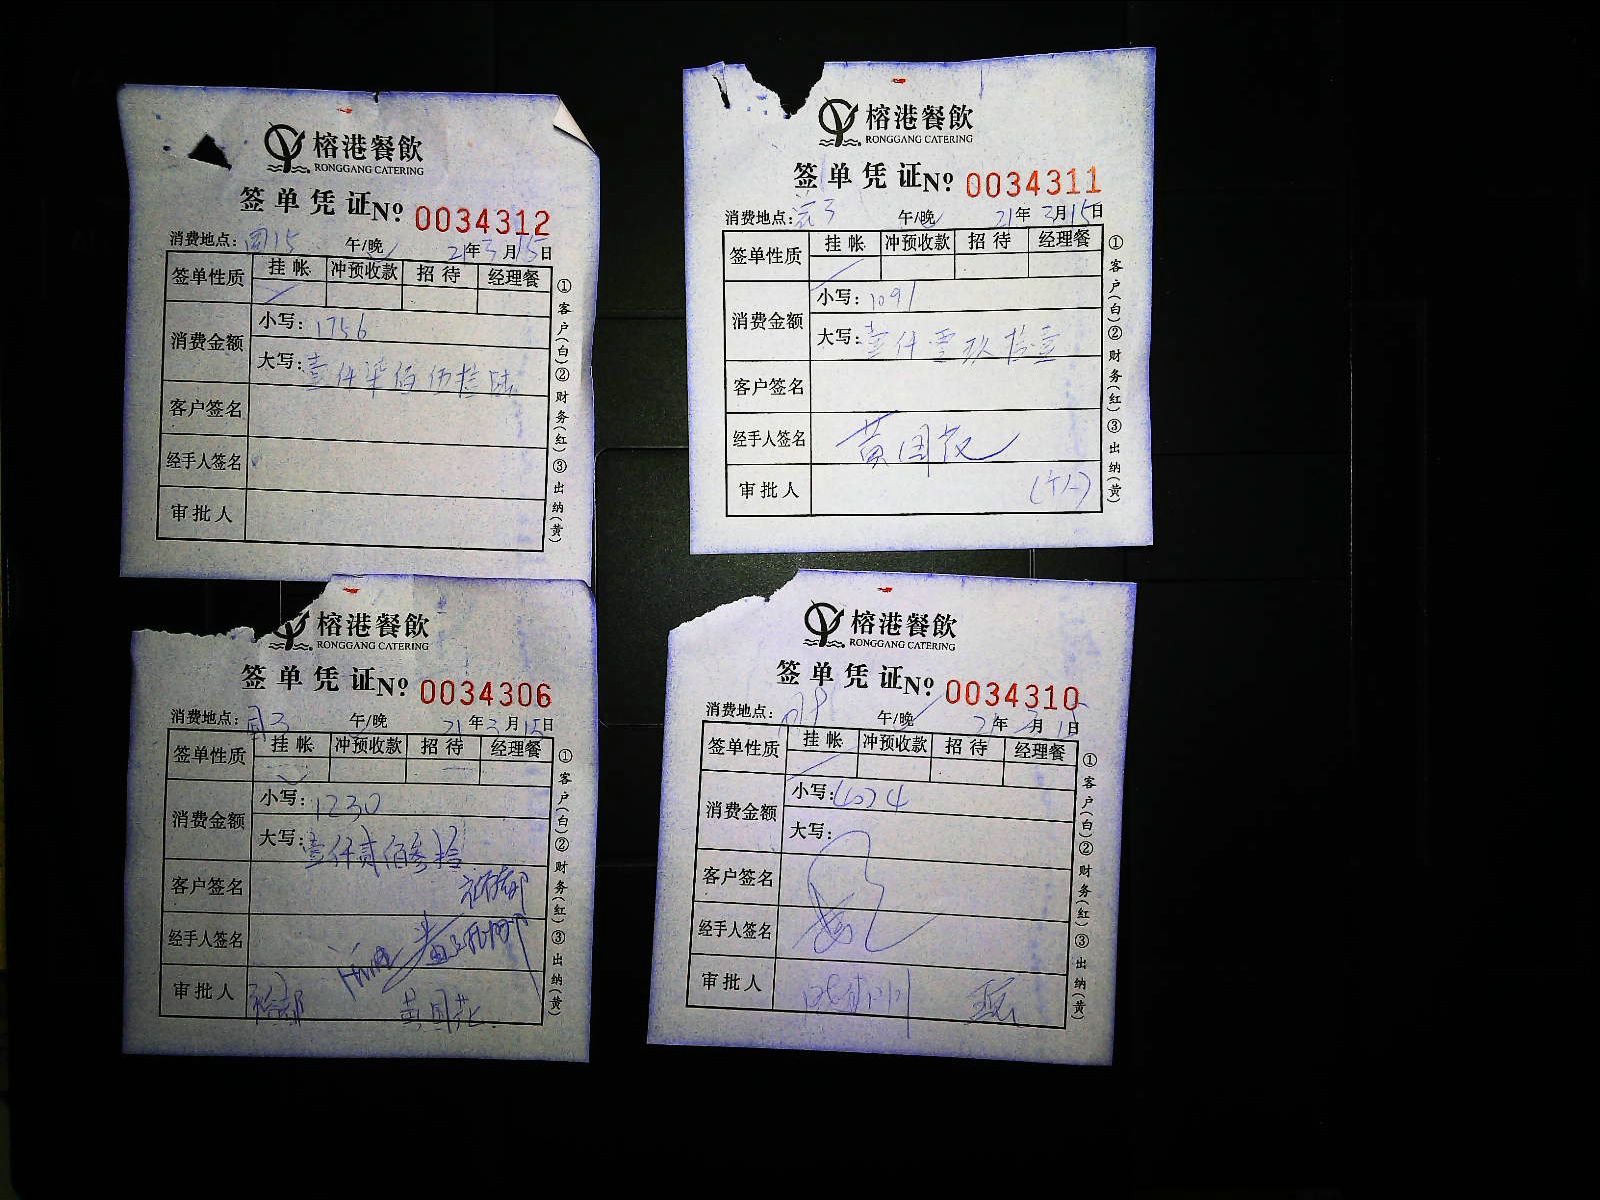 榕港餐飲
RONGGANG CATERING
签单凭证 Nº 0034312
消费地点: 午/晚 21年3月15日
签单性质 挂帐 冲预收款 招待 经理餐
消费金额 小写: 1756
大写: 壹仟柒佰伍拾陆
客户签名
经手人签名
审批人
①客户(白)②财务(红)③出纳(黄)
榕港餐飲
RONGGANG CATERING
签单凭证 Nº 0034311
消费地点: 午/晚 21年3月15日
签单性质 挂帐 冲预收款 招待 经理餐
消费金额 小写: 1091
大写: 壹仟零玖拾壹
客户签名
经手人签名 黄国
审批人 (个人)
①客户(白)②财务(红)③出纳(黄)
榕港餐飲
RONGGANG CATERING
签单凭证 Nº 0034306
消费地点: 午/晚 21年3月15日
签单性质 挂帐 冲预收款 招待 经理餐
消费金额 小写: 1230
大写: 壹仟贰佰叁拾
客户签名
经手人签名
审批人 黄国花
①客户(白)②财务(红)③出纳(黄)
榕港餐飲
RONGGANG CATERING
签单凭证 Nº 0034310
消费地点: 午/晚 21年3月15日
签单性质 挂帐 冲预收款 招待 经理餐
消费金额 小写: 4024
大写:
客户签名
经手人签名
审批人
①客户(白)②财务(红)③出纳(黄)